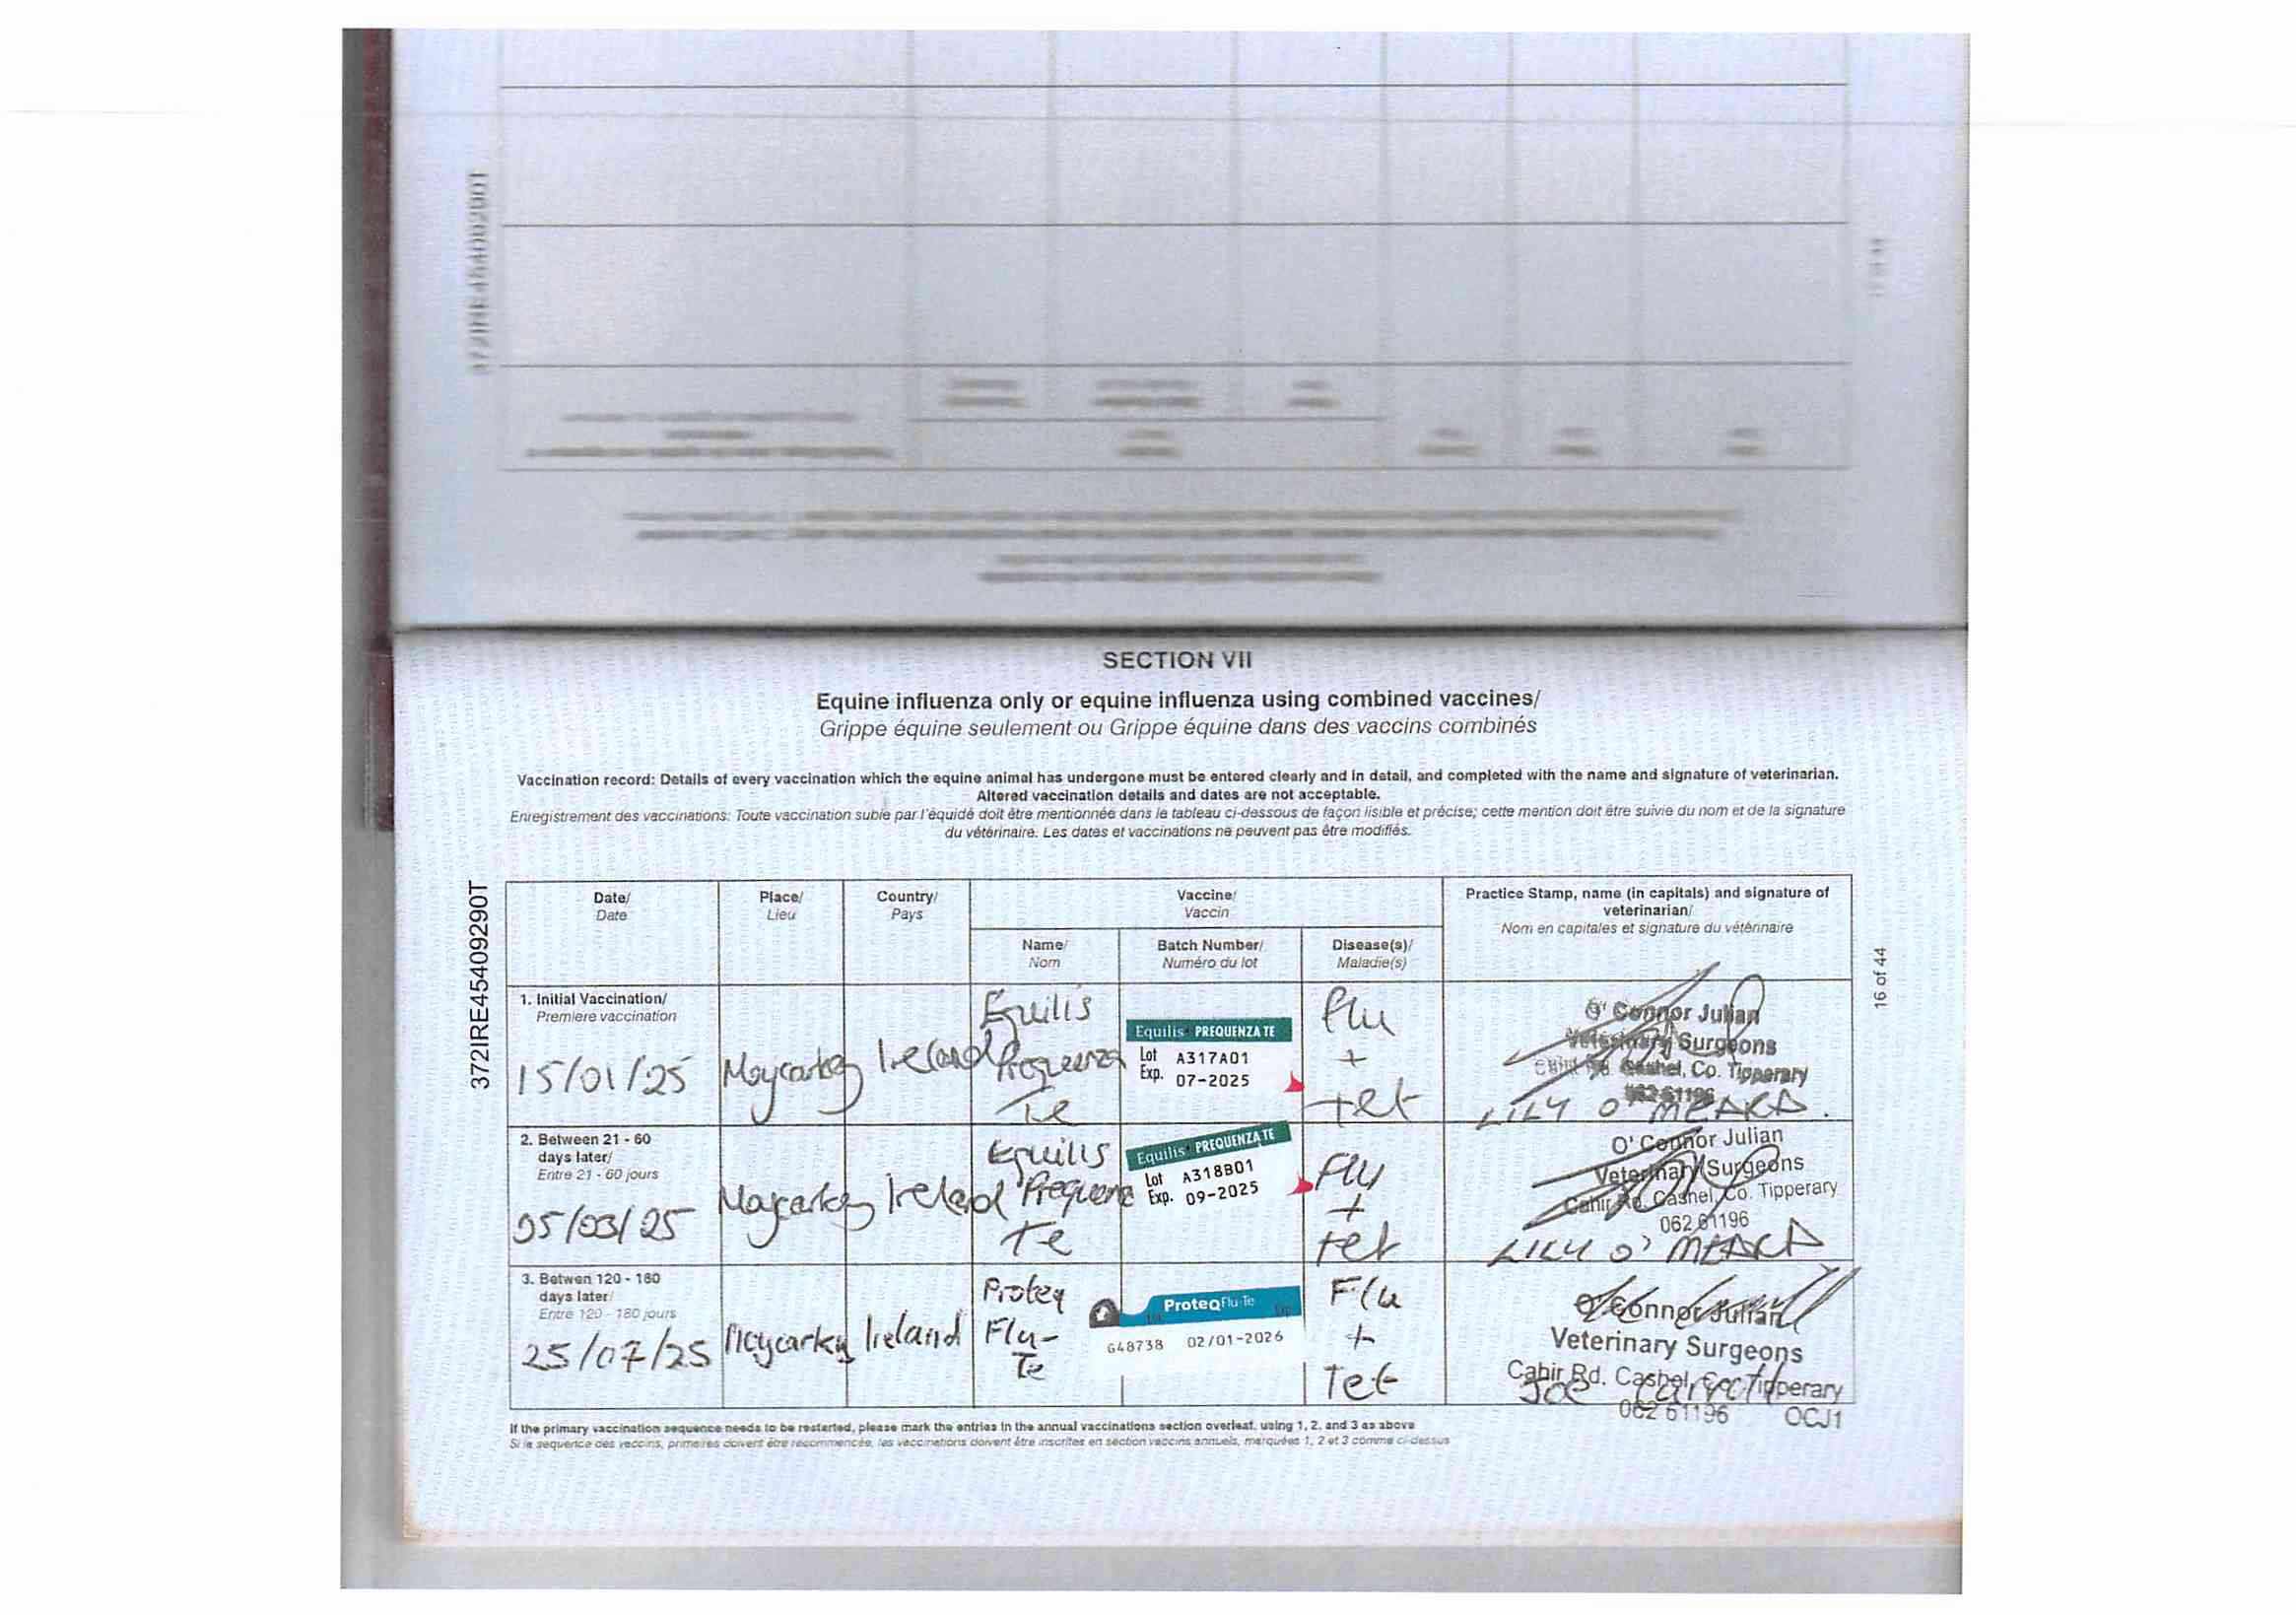 SECTION VII
Equine influenza only or equine influenza using combined vaccines/
Grippe équine seulement ou Grippe équine dans des vaccins combinés
Vaccination record: Details of every vaccination which the equine animal has undergone must be entered clearly and in detail, and completed with the name and signature of veterinarian.
Altered vaccination details and dates are not acceptable.
Enregistrement des vaccinations: Toute vaccination subie par l'équidé doit être mentionnée dans le tableau ci-dessous de façon lisible et précise; cette mention doit être suivie du nom et de la signature
du vétérinaire. Les dates et vaccinations ne peuvent pas être modifiés.
372IRE454092290T
16 of 44
Date/
Date
Place/
Lieu
Country/
Pays
Vaccine/
Vaccin
Name/
Nom
Batch Number/
Numéro du lot
Disease(s)/
Maladie(s)
Practice Stamp, name (in capitals) and signature of
veterinarian/
Nom en capitales et signature du vétérinaire
1. Initial Vaccination/
Premiere vaccination
15/01/25
Moycarkey
Ireland
Equilis
Prequenza
Te
Equilis PREQUENZA TE
Lot A317A01
Exp. 07-2025
Flu
+
tet
O' Connor Julian
Veterinary Surgeons
Cahir Rd. Cashel, Co. Tipperary
062 61196
LILY O' MEARA.
2. Between 21 - 60
days later/
Entre 21 - 60 jours
05/03/25
Moycarkey
Ireland
Equilis
Prequenza
Te
Equilis PREQUENZA TE
Lot A318B01
Exp. 09-2025
Flu
+
tet
O' Connor Julian
Veterinary Surgeons
Cahir Rd. Cashel, Co. Tipperary
062 61196
LILY O' MEARA
3. Betwen 120 - 180
days later/
Entre 120 - 180 jours
25/07/25
Moycarky
Ireland
Proteq
Flu-
Te
ProteqFlu-Te
G48738 02/01-2026
Flu
+
Tet
O' Connor Julian
Veterinary Surgeons
Cahir Rd. Cashel, Co. Tipperary
Joe Carroll
062 61196 OCJ1
If the primary vaccination sequence needs to be restarted, please mark the entries in the annual vaccinations section overleaf, using 1, 2, and 3 as above
Si la sequence des vaccins, primeires doivent être recommencée, les vaccinations doivent être inscrites en section vaccins annuels, marquées 1, 2 et 3 comme ci-dessus